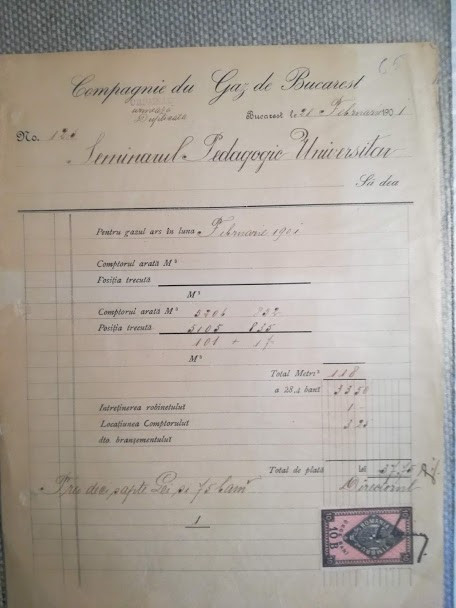 65
Compagnie du Gaz de Bucarest
Bucarest le 21 Februarie 1901
No. 126
Seminarul Pedagogic Universitar
Să dea
Pentru gazul ars în luna Februarie 1901
Comptorul arată M³
Poziția trecută
M³
Comptorul arată M³ 5206 832
Poziția trecută 5105 815
101 + 17
M³
Total Metri³ 118
a 28.4 bani 33 50
Intreținerea robinetului 1 -
Locațiunea Comptorului 3 25
dta branșementului
Total de plată Lei 37,75
Trei deci șapte Lei și 75 bani
Directorul
1
ROMANIA
10 B